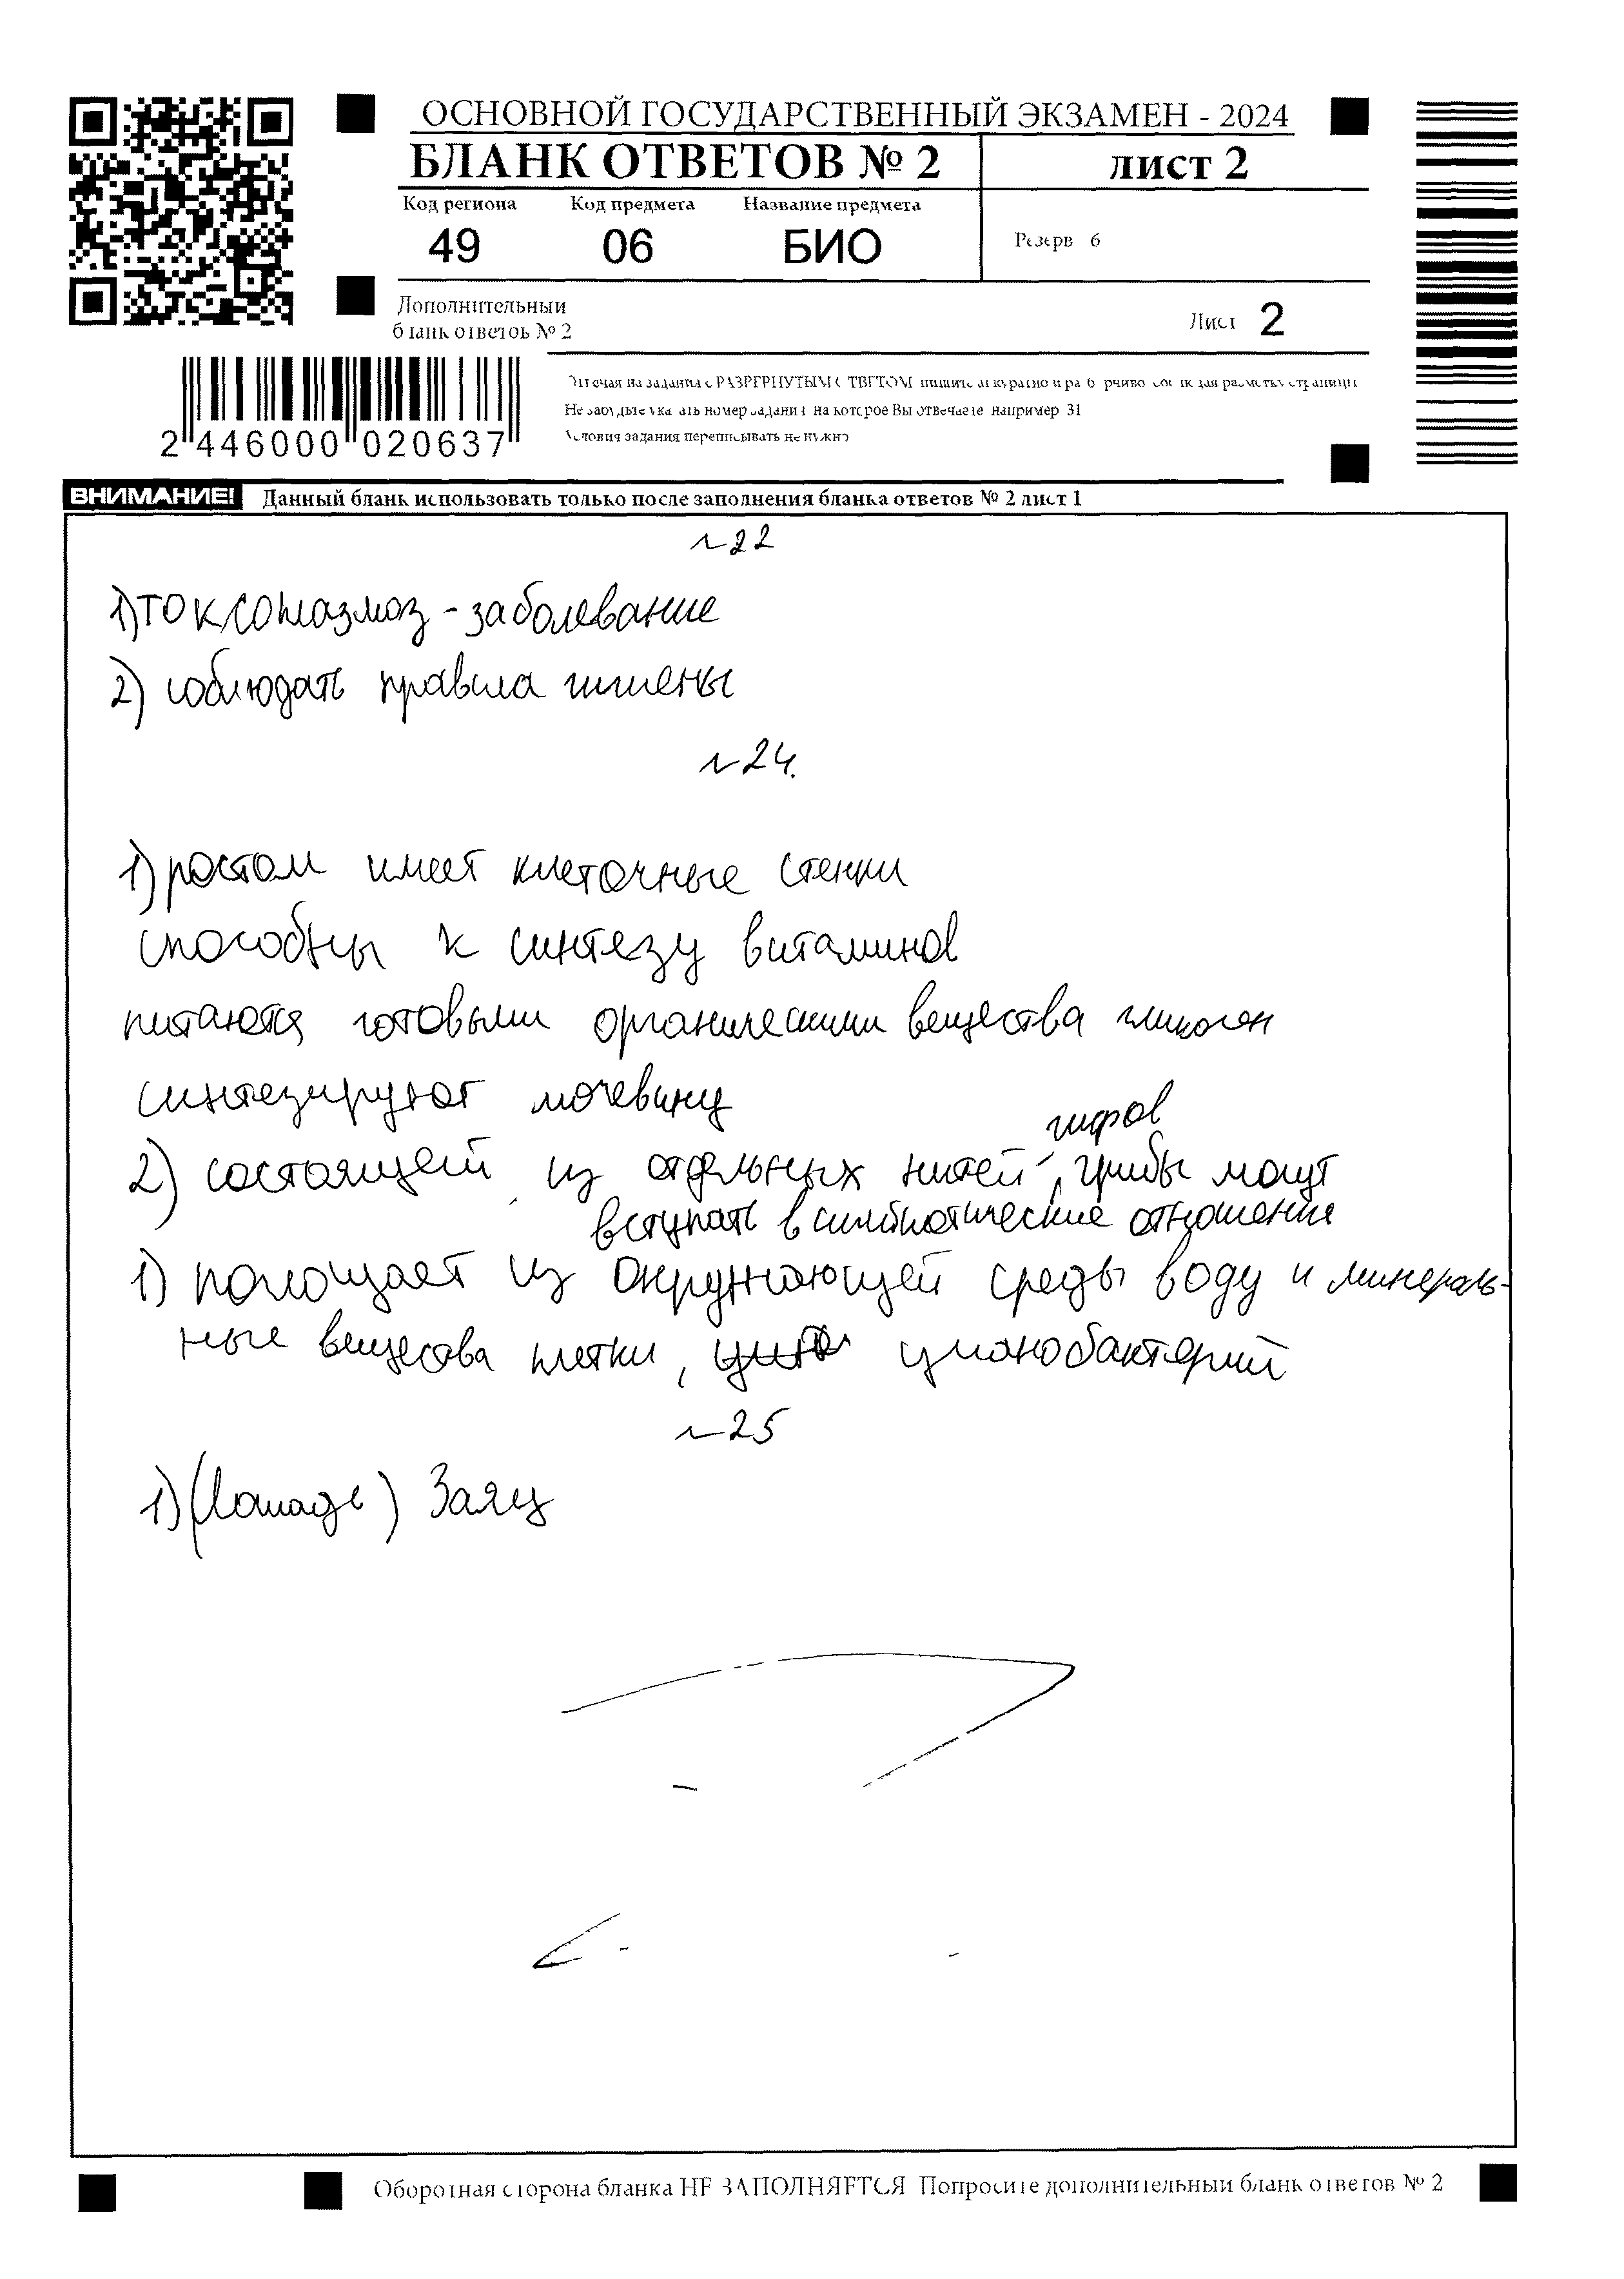 ОСНОВНОЙ ГОСУДАРСТВЕННЫЙ ЭКЗАМЕН - 2024
БЛАНК ОТВЕТОВ № 2
лист 2
Код региона Код предмета Название предмета
49 06 БИО
Резерв 6
Дополнительный
бланк ответов № 2
Лист 2
Отвечая на задания с РАЗВЕРНУТЫМ ОТВЕТОМ, пишите аккуратно и разборчиво, соблюдая разметку страницы
Не забудьте указать номер задания, на которое Вы отвечаете, например 31
Условия задания переписывать не нужно
2 446000 020637
ВНИМАНИЕ! Данный бланк использовать только после заполнения бланка ответов № 2 лист 1
№22
1) токсоплазмоз - заболевание
2) соблюдать правила гигиены
№24.
1) ростом имеет клеточные стенки
способны к синтезу витаминов
питаются готовыми органическими вещества гликоген
синтезируют мочевину
гифов
2) состоящей из отдельных нитей, грибы могут
вступать в симбиотические отношение
1) поглощает из окружающей среды воду и минераль-
ные вещества клетки, цианобактерий
№25
1) (Лошадь) Заяц
Оборотная сторона бланка НЕ ЗАПОЛНЯЕТСЯ Попросите дополнительный бланк ответов № 2